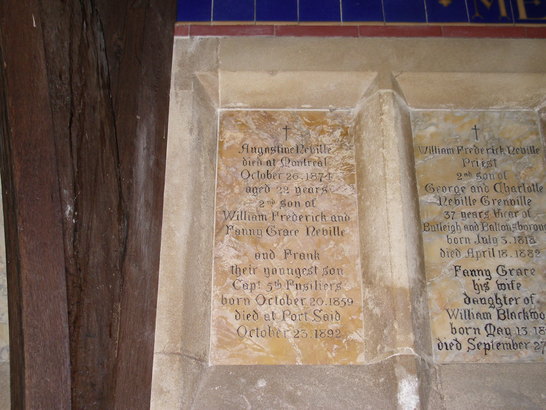 ME
Augustine Neville
died at Montreal
October 26. 1874
aged 22 years
2nd son of
William Frederick and
Fanny Grace Neville
and Frank
their youngest son
Capt 5th Fusiliers
born October 20. 1859
died at Port Said
October 23. 1892
William Frederick Neville
Priest
2nd son of
George and Charlotte
Neville Grenville
37 years Vicar of
Butleigh and Baltonsborough
born July
died April 18. 1882
Fanny Grace
his wife
daughter of
William Blackwo
born May 13. 18
died September 27